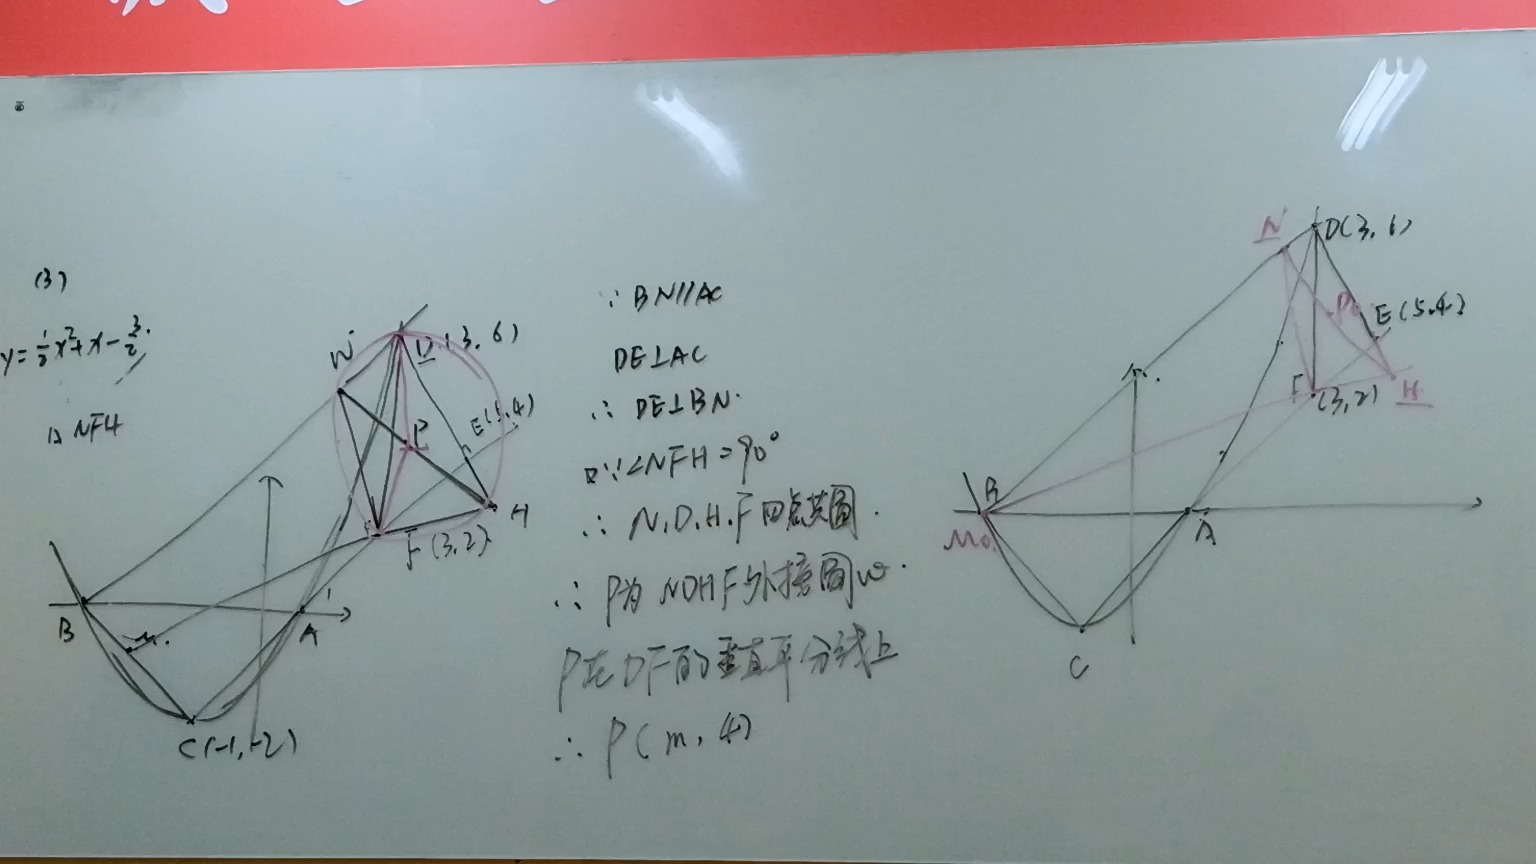 (3)
y=½x²+x-3/2.
△NFH
N
D(3,6)
P
E(5,4)
H
F(3,2)
B
M.
A
C(-1,-2)
∵BN//AC
DE⊥AC
∴DE⊥BN.
∵∠NFH=90°
∴N.D.H.F四点共圆.
∴P为NDHF外接圆
P在DF的垂直平分线上
∴P(m,4)
N
D(3,6)
P0
E(5,4)
F
(3,2)
H
B
M0
A
C